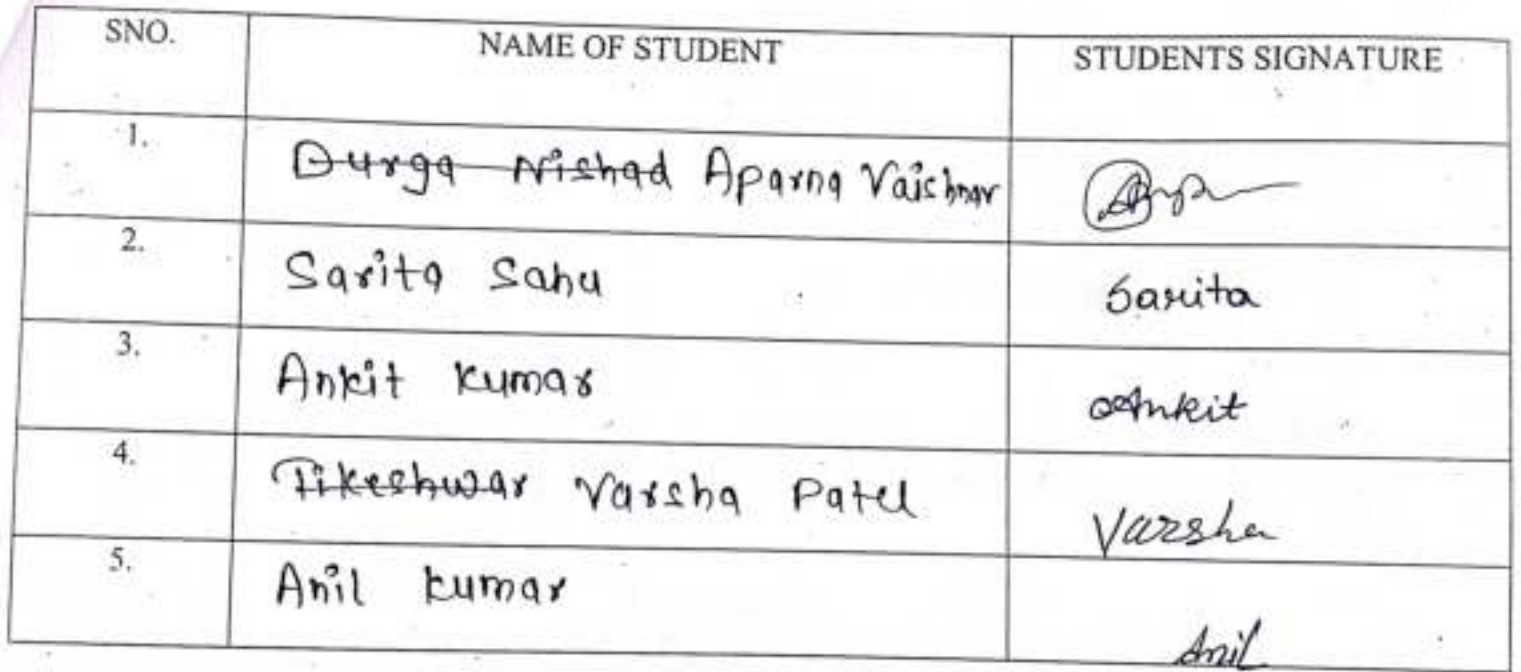 SNO. NAME OF STUDENT STUDENTS SIGNATURE
1. Durga Nishad Aparna Vaishnav
2. Sarita Sahu Sarita
3. Ankit Kumar Ankit
4. Tikeshwar Varsha Patel Varsha
5. Anil Kumar Anil